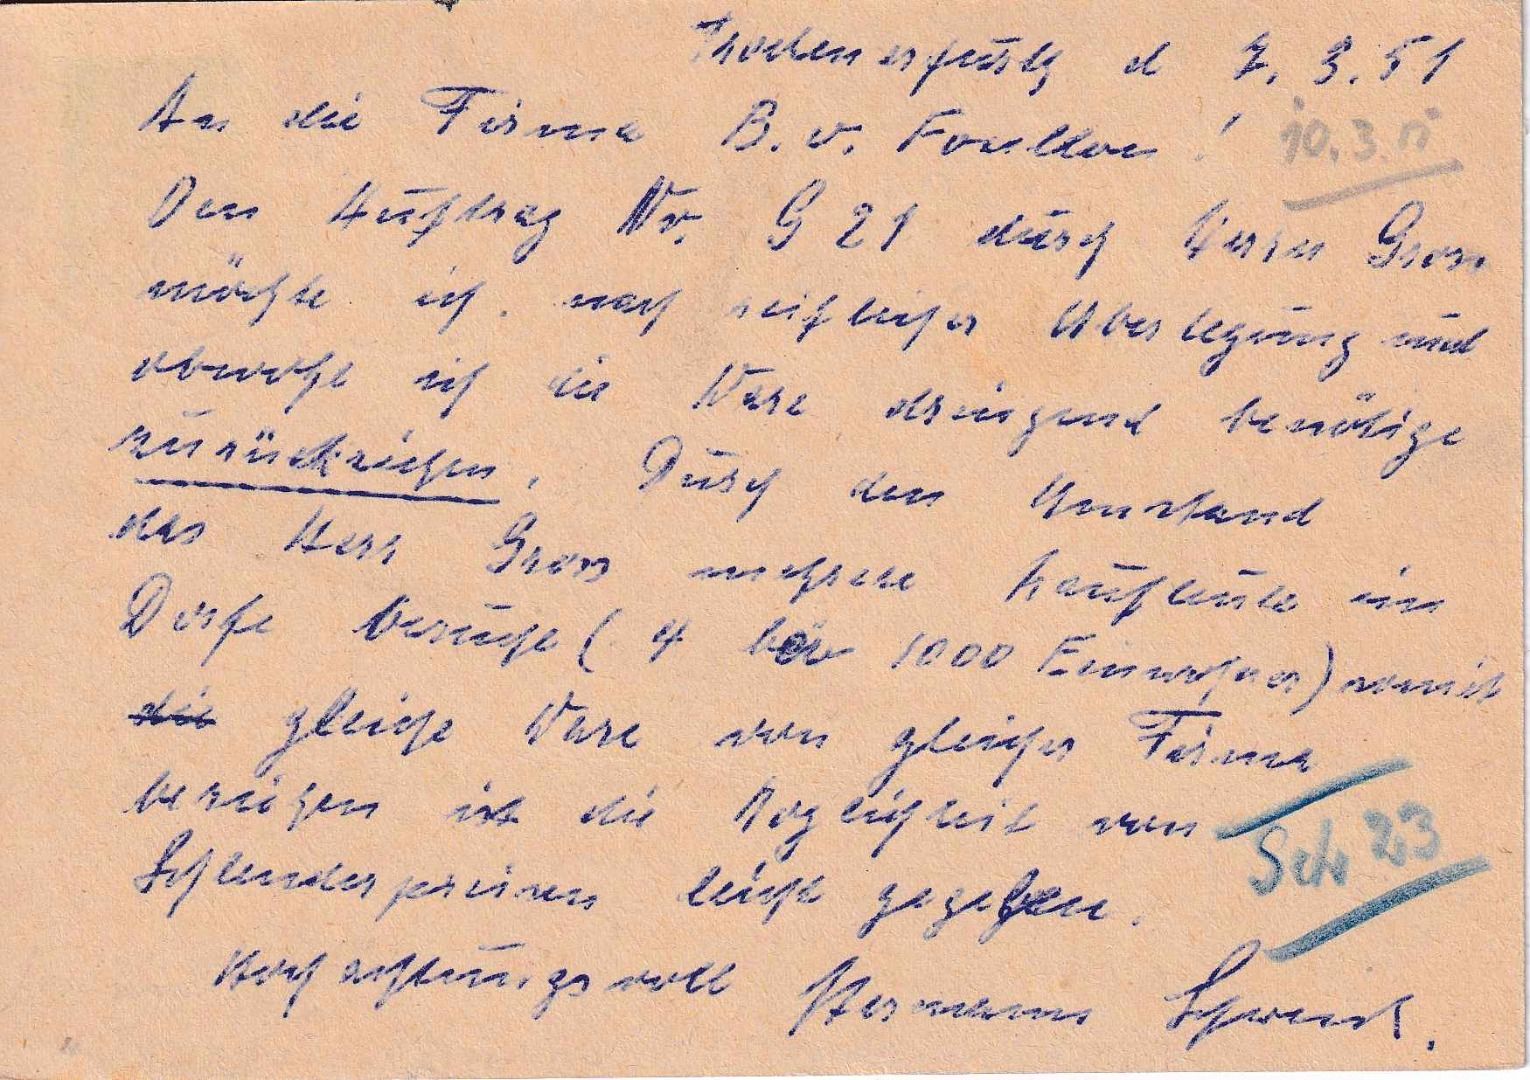 d 7. 3. 51
An die Firma B. v. Foullon !
10. 3. 51
Den Auftrag Nr. G 21 durch Herrn Gross
möchte ich, nach reiflicher Überlegung und
obwohl ich die Ware dringend benötige
zurückziehen. Durch den Umstand
das Herr Gross mehrere Kaufleute im
Dorfe besucht ( 4 bei 1000 Einwohner) somit
die gleiche Ware von gleicher Firma
beziehen ist die Möglichkeit von
Sch 23
Schleuderpreisen leicht gegeben.
Hochachtungsvoll Hermann